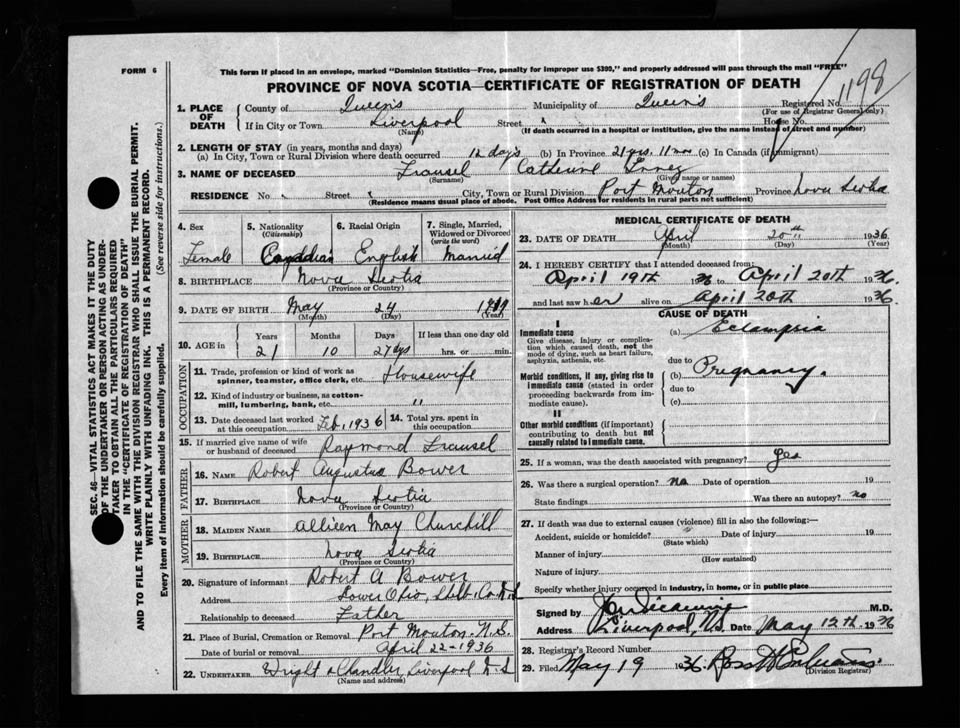 1198
FORM 6
This form if placed in an envelope, marked "Dominion Statistics—Free, penalty for improper use $300," and properly addressed will pass through the mail "FREE"
PROVINCE OF NOVA SCOTIA—CERTIFICATE OF REGISTRATION OF DEATH
1. PLACE OF DEATH County of Queens Municipality of Queens Registered No.
(For use of Registrar General only)
If in City or Town Liverpool Street House No.
(Name) (If death occurred in a hospital or institution, give the name instead of street and number)
2. LENGTH OF STAY (in years, months and days)
(a) In City, Town or Rural Division where death occurred 12 days (b) In Province 21 yrs. 11 mos (c) In Canada (if immigrant)
3. NAME OF DECEASED Catherine
(Surname) (Given name or names)
RESIDENCE No. Street City, Town or Rural Division Port Mouton Province Nova Scotia
(Residence means usual place of abode. Post Office Address for residents in rural parts not sufficient)
4. Sex 5. Nationality (Citizenship) 6. Racial Origin 7. Single, Married, Widowed or Divorced (write the word)
Female Canadian English Married
8. BIRTHPLACE Nova Scotia
(Province or Country)
9. DATE OF BIRTH May 24
(Month) (Day) (Year)
10. AGE in Years Months Days If less than one day old
21 10 27 dys hrs. or min.
OCCUPATION
11. Trade, profession or kind of work as spinner, teamster, office clerk, etc. Housewife
12. Kind of industry or business, as cotton-mill, lumbering, bank, etc. "
13. Date deceased last worked at this occupation Feb, 1936 14. Total yrs. spent in this occupation
15. If married give name of wife or husband of deceased Raymond
FATHER
16. NAME Robert Augustus Bower
17. BIRTHPLACE Nova Scotia
MOTHER
18. MAIDEN NAME May Churchill
19. BIRTHPLACE Nova Scotia
(Province or Country)
20. Signature of informant Robert A Bower
Address Lower Ohio, Shelb. Co. N.S
Relationship to deceased Father
21. Place of Burial, Cremation or Removal Port Mouton. N.S.
Date of burial or removal April 22-1936
22. UNDERTAKER Wright & Chandler, Liverpool N.S
(Name and address)
MEDICAL CERTIFICATE OF DEATH
23. DATE OF DEATH April 20th 1936
(Month) (Day) (Year)
24. I HEREBY CERTIFY that I attended deceased from:
April 19th 1936 to April 20th 1936
and last saw her alive on April 20th 1936
CAUSE OF DEATH
I
Immediate cause (a) Eclampsia
Give disease, injury or complication which caused death, not the mode of dying, such as heart failure, asphyxia, asthenia, etc.
due to
Morbid conditions, if any, giving rise to immediate cause (stated in order proceeding backwards from immediate cause). (b) Pregnancy.
due to
(c)
II
Other morbid conditions (if important) contributing to death but not causally related to immediate cause.
25. If a woman, was the death associated with pregnancy? yes
26. Was there a surgical operation? no Date of operation 19
State findings Was there an autopsy? no
27. If death was due to external causes (violence) fill in also the following:—
Accident, suicide or homicide? Date of injury 19
(State which)
Manner of injury
(How sustained)
Nature of injury
Specify whether injury occurred in industry, in home, or in public place
Signed by M.D.
Address Liverpool, N.S. Date May 12th. 1936
28. Registrar's Record Number
29. Filed May 19 1936
(Division Registrar)
SEC. 46—VITAL STATISTICS ACT MAKES IT THE DUTY
OF THE UNDERTAKER OR PERSON ACTING AS UNDER-
TAKER TO OBTAIN ALL THE PARTICULARS REQUIRED
IN THE "CERTIFICATE OF REGISTRATION OF DEATH"
AND TO FILE THE SAME WITH THE DIVISION REGISTRAR WHO SHALL ISSUE THE BURIAL PERMIT.
WRITE PLAINLY WITH UNFADING INK. THIS IS A PERMANENT RECORD.
Every item of information should be carefully supplied. (See reverse side for instructions.)